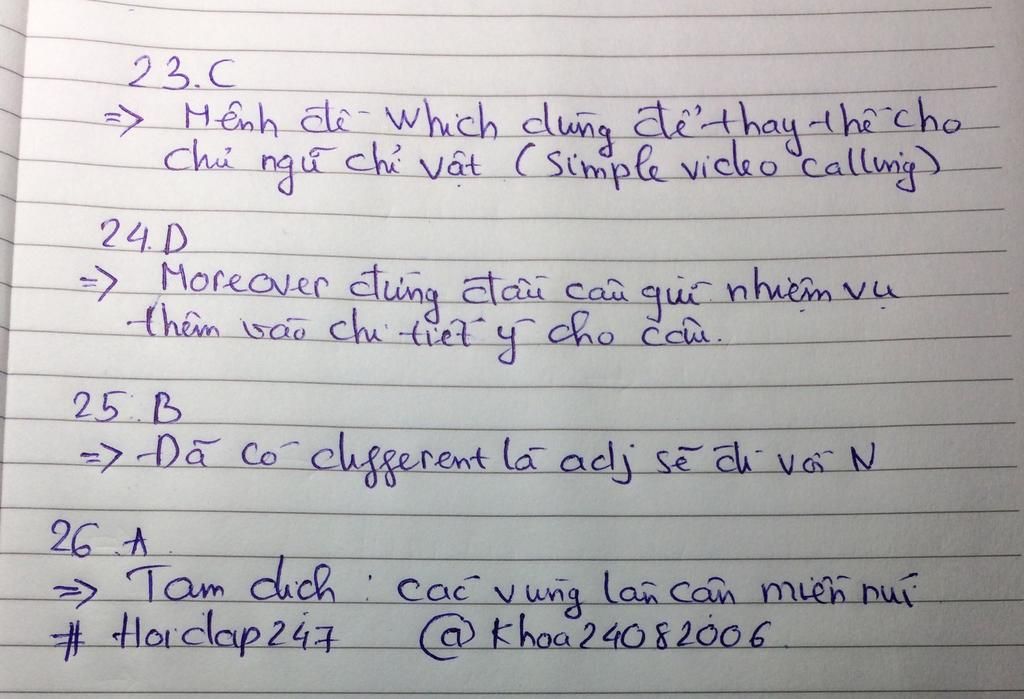 23.C
=> Mệnh đề which dùng để thay thế cho
chủ ngữ chỉ vật (simple video calling)
24.D
=> Moreover đứng đầu câu giữ nhiệm vụ
thêm vào chi tiết ý cho câu.
25.B
=> Đã có different là adj sẽ đi với N
26.A
=> Tạm dịch: các vùng lân cận miền núi
# Hoidap247 @khoa24082006